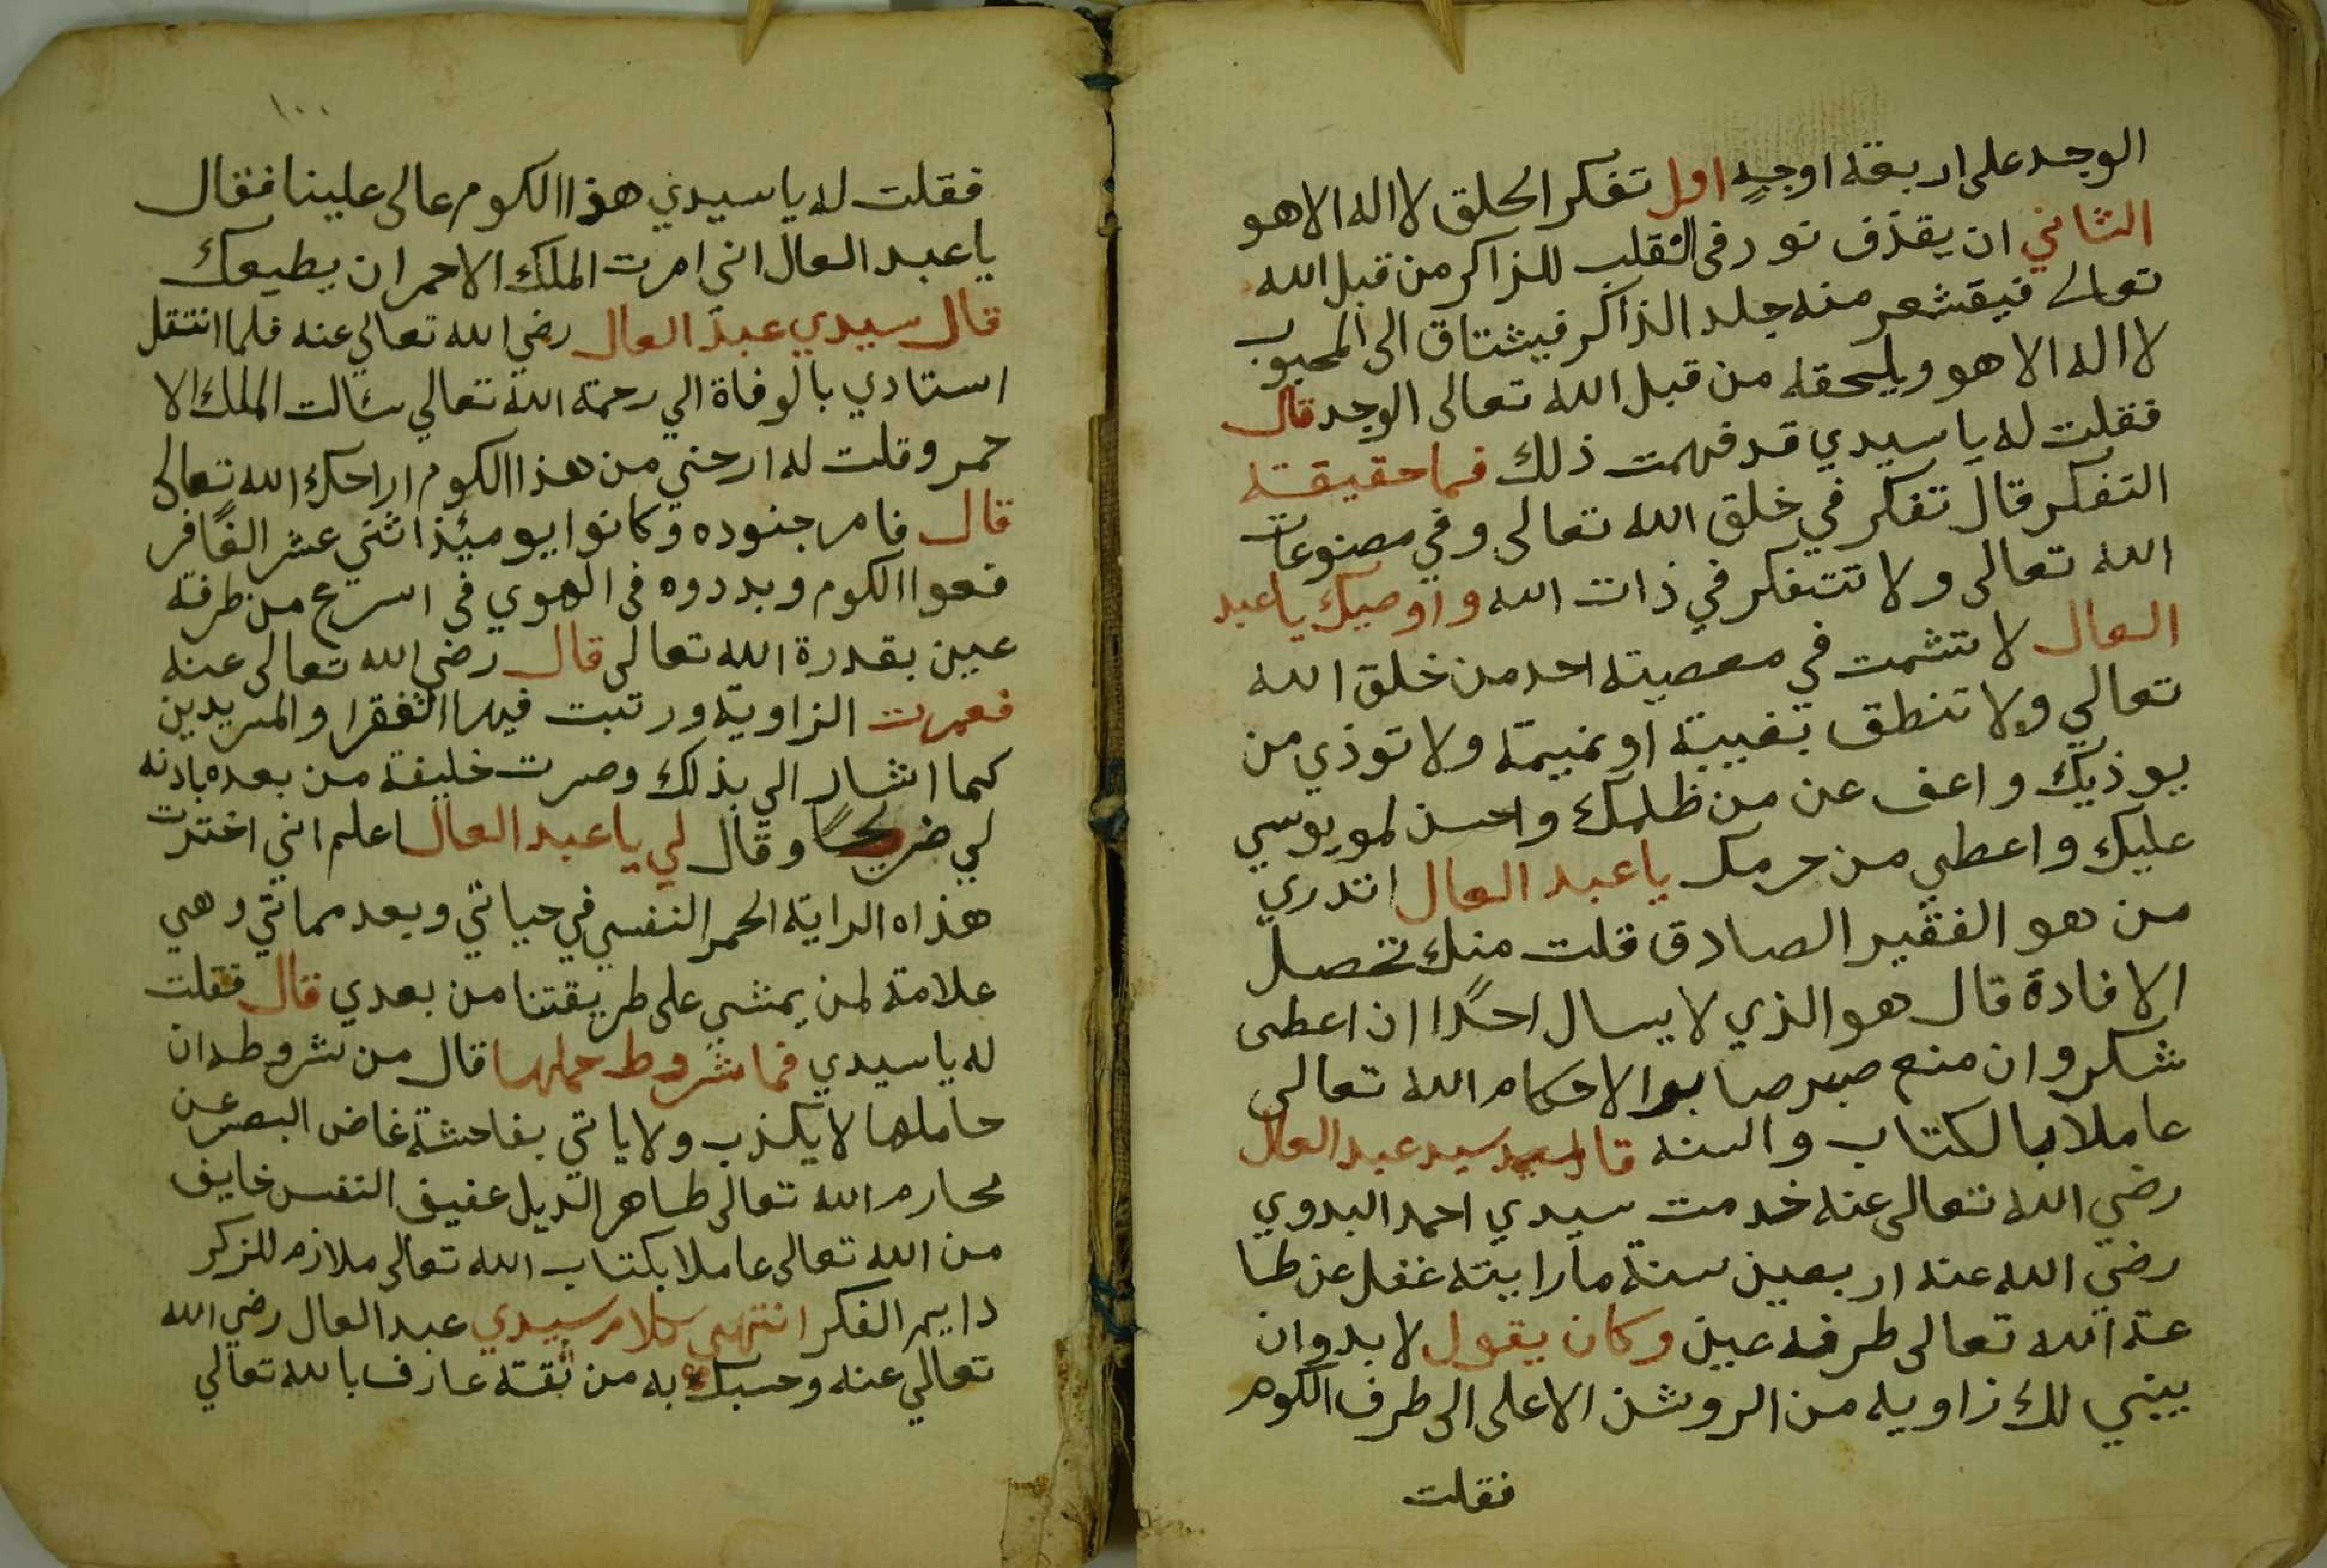 الوجد على اربعة اوجه اول تفكر الحلق لا اله الا هو
الثاني ان يقذف نور في القلب للذاكر من قبل الله
تعالى فيقشعر منه جلد الذاكر فيشتاق الى المحبوب
لا اله الا هو ويلحقه من قبل الله تعالى الوجد قال
فقلت له يا سيدي قد فهمت ذلك فما حقيقة
التفكر قال تفكر في خلق الله تعالى وفي مصنوعات
الله تعالى ولا تتفكر في ذات الله واوصيك يا عبد
العال لا تشمت في معصية احد من خلق الله
تعالي ولا تنطق بغيبة او نميمة ولا توذي من
يوذيك واعف عن من ظلمك واحسن لمو يوسي
عليك واعطي من حرمك يا عبد العال اتدري
من هو الفقير الصادق قلت منك تحصل
الافادة قال هو الذي لا يسال احدًا ان اعطى
شكر وان منع صبر صابر الاحكام الله تعالى
عاملا بالكتاب والسنه قال سيد عبد العال
رضي الله تعالى عنه خدمت سيدي احمد البدوي
رضي الله عنه اربعين سنة ما رايته غفل عن طا
عة الله تعالى طرفه عين وكان يقول لا بد وان
يبني لك زاويه من الروشن الاعلى الى طرف الكوم
فقلت
١٠٠
فقلت له يا سيدي هذا الكوم عالى علينا فقال
يا عبد العال اني امرت الملك الاحمر ان يطيعك
قال سيدي عبد العال رضي الله تعالي عنه فلما انتقل
استادي بالوفاة الي رحمة الله تعالي سالت الملك الا
حمر وقلت له ارحني من هذا الكوم اراحك الله تعالى
قال فامر جنوده وكانوا يوميئذ اثني عشر الفًا فر
فعوا الكوم وبددوه في الهوي في اسرع من طرفة
عين بقدرة الله تعالى قال رضي الله تعالى عنه
فعمرت الزاوية ورتبت فيها الفقرا والمريدين
كما اشار الي بذلك وصرت خليفة من بعده باذنه
لي ضريحًا وقال لي يا عبد العال اعلم اني اخترت
هذاه الراية الحمر النفسي في حياتي وبعد مماتي وهي
علامة لمن يمشي على طريقتنا من بعدي قال فقلت
له يا سيدي فما شروط حملها قال من شروطه ان
حاملها لا يكذب ولا ياتي بفاحشة غاض البصر عن
محارم الله تعالى طاهر الديل عفيف النفس خايف
من الله تعالى عاملا بكتاب الله تعالى ملازم للزكر
دايم الفكر انتهى كلام سيدي عبد العال رضي الله
تعالي عنه وحسبك به من ثقة عارف بالله تعالي